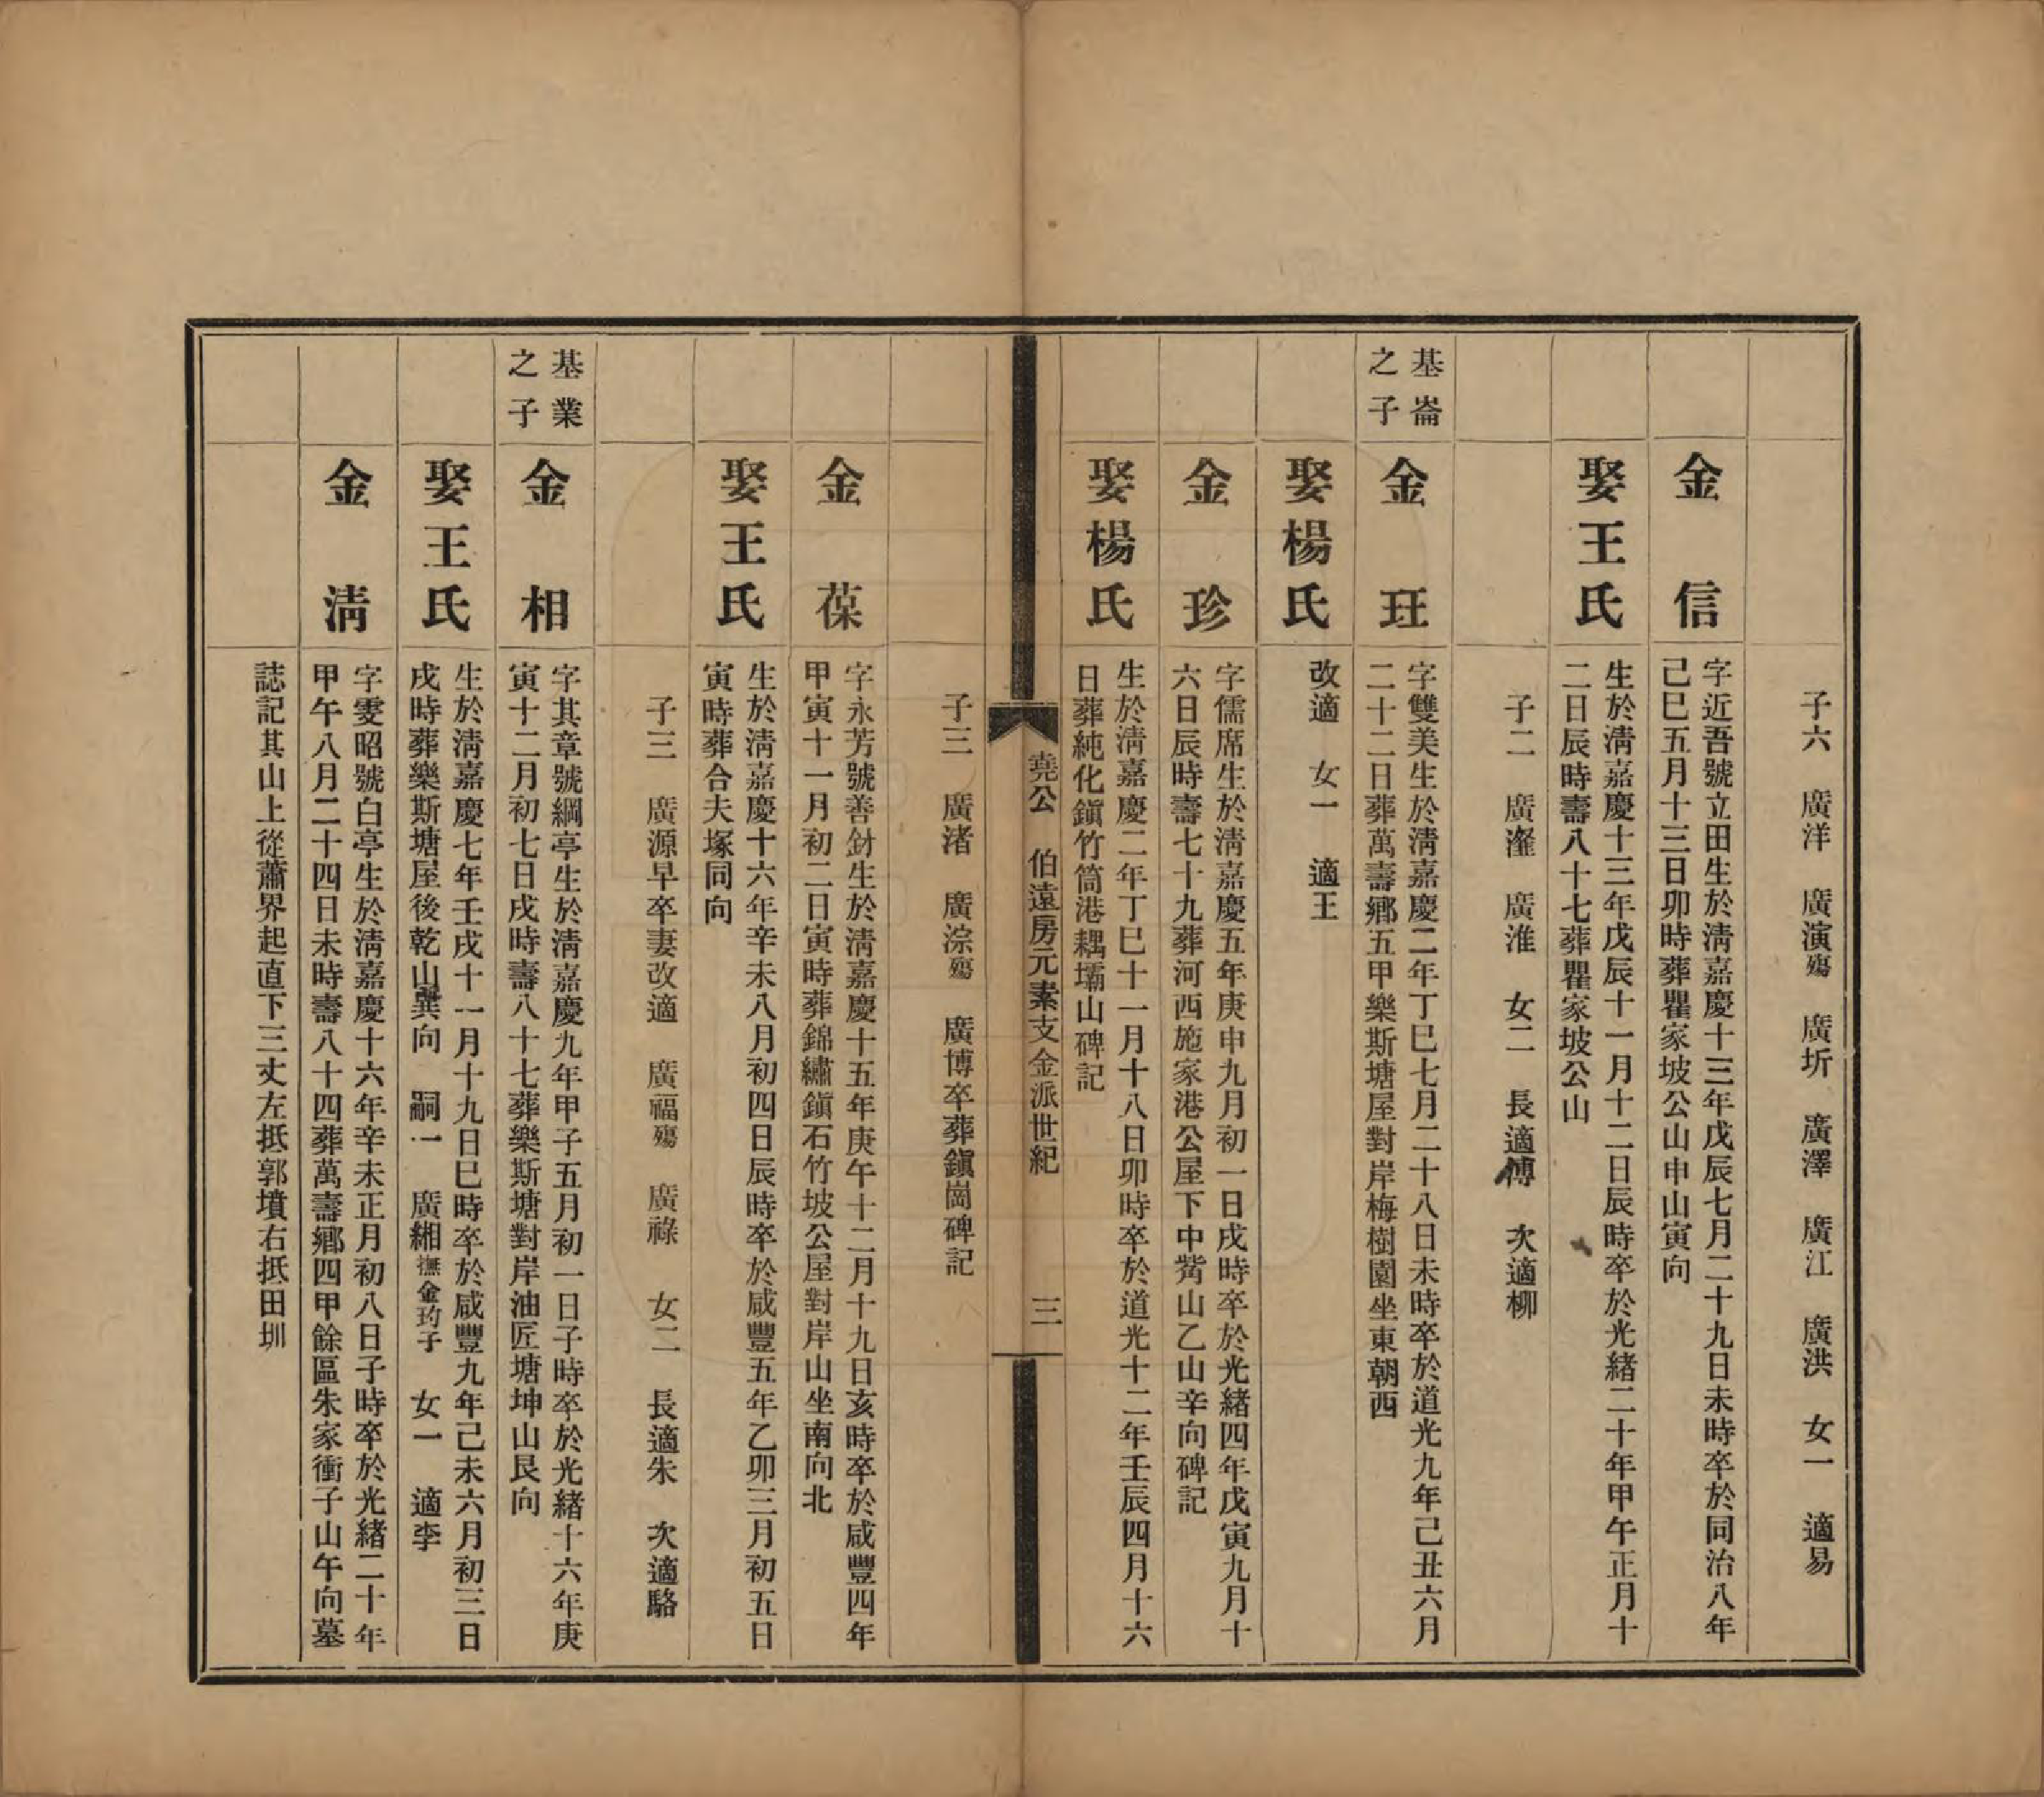 子六　廣洋　廣演殤　廣圻　廣澤　廣江　廣洪　女一　適易
金信
字近吾號立田生於淸嘉慶十三年戊辰七月二十九日未時卒於同治八年
己巳五月十三日卯時葬瞿家坡公山申山寅向
娶王氏
生於淸嘉慶十三年戊辰十一月十二日辰時卒於光緒二十年甲午正月十
二日辰時壽八十七葬瞿家坡公山
子二　廣瀣　廣淮　女二　長適傅　次適柳
基崙
之子
金玨
字雙美生於淸嘉慶二年丁巳七月二十八日未時卒於道光九年己丑六月
二十二日葬萬壽鄉五甲樂斯塘屋對岸梅樹園坐東朝西
娶楊氏
改適　女一　適王
金珍
字儒席生於淸嘉慶五年庚申九月初一日戌時卒於光緒四年戊寅九月十
六日辰時壽七十九葬河西施家港公屋下中觜山乙山辛向碑記
娶楊氏
生於淸嘉慶二年丁巳十一月十八日卯時卒於道光十二年壬辰四月十六
日葬純化鎭竹筒港耦壩山碑記
堯公　伯遠房元素支金派世紀　三
子三　廣渚　廣淙殤　廣博卒葬鎭崗碑記
金葆
字永芳號善針生於淸嘉慶十五年庚午十二月十九日亥時卒於咸豐四年
甲寅十一月初二日寅時葬錦繡鎭石竹坡公屋對岸山坐南向北
娶王氏
生於淸嘉慶十六年辛未八月初四日辰時卒於咸豐五年乙卯三月初五日
寅時葬合夫塚同向
子三　廣源早卒妻改適　廣福殤　廣祿　女二　長適朱　次適駱
基業
之子
金相
字其章號綱亭生於淸嘉慶九年甲子五月初一日子時卒於光緒十六年庚
寅十二月初七日戌時壽八十七葬樂斯塘對岸油匠塘坤山艮向
娶王氏
生於淸嘉慶七年壬戌十一月十九日巳時卒於咸豐九年己未六月初三日
戌時葬樂斯塘屋後乾山巽向　嗣一　廣緗撫金玓子　女一　適李
金淸
字雯昭號白亭生於淸嘉慶十六年辛未正月初八日子時卒於光緒二十年
甲午八月二十四日未時壽八十四葬萬壽鄉四甲餘區朱家衝子山午向墓
誌記其山上從蕭界起直下三丈左抵郭墳右抵田圳